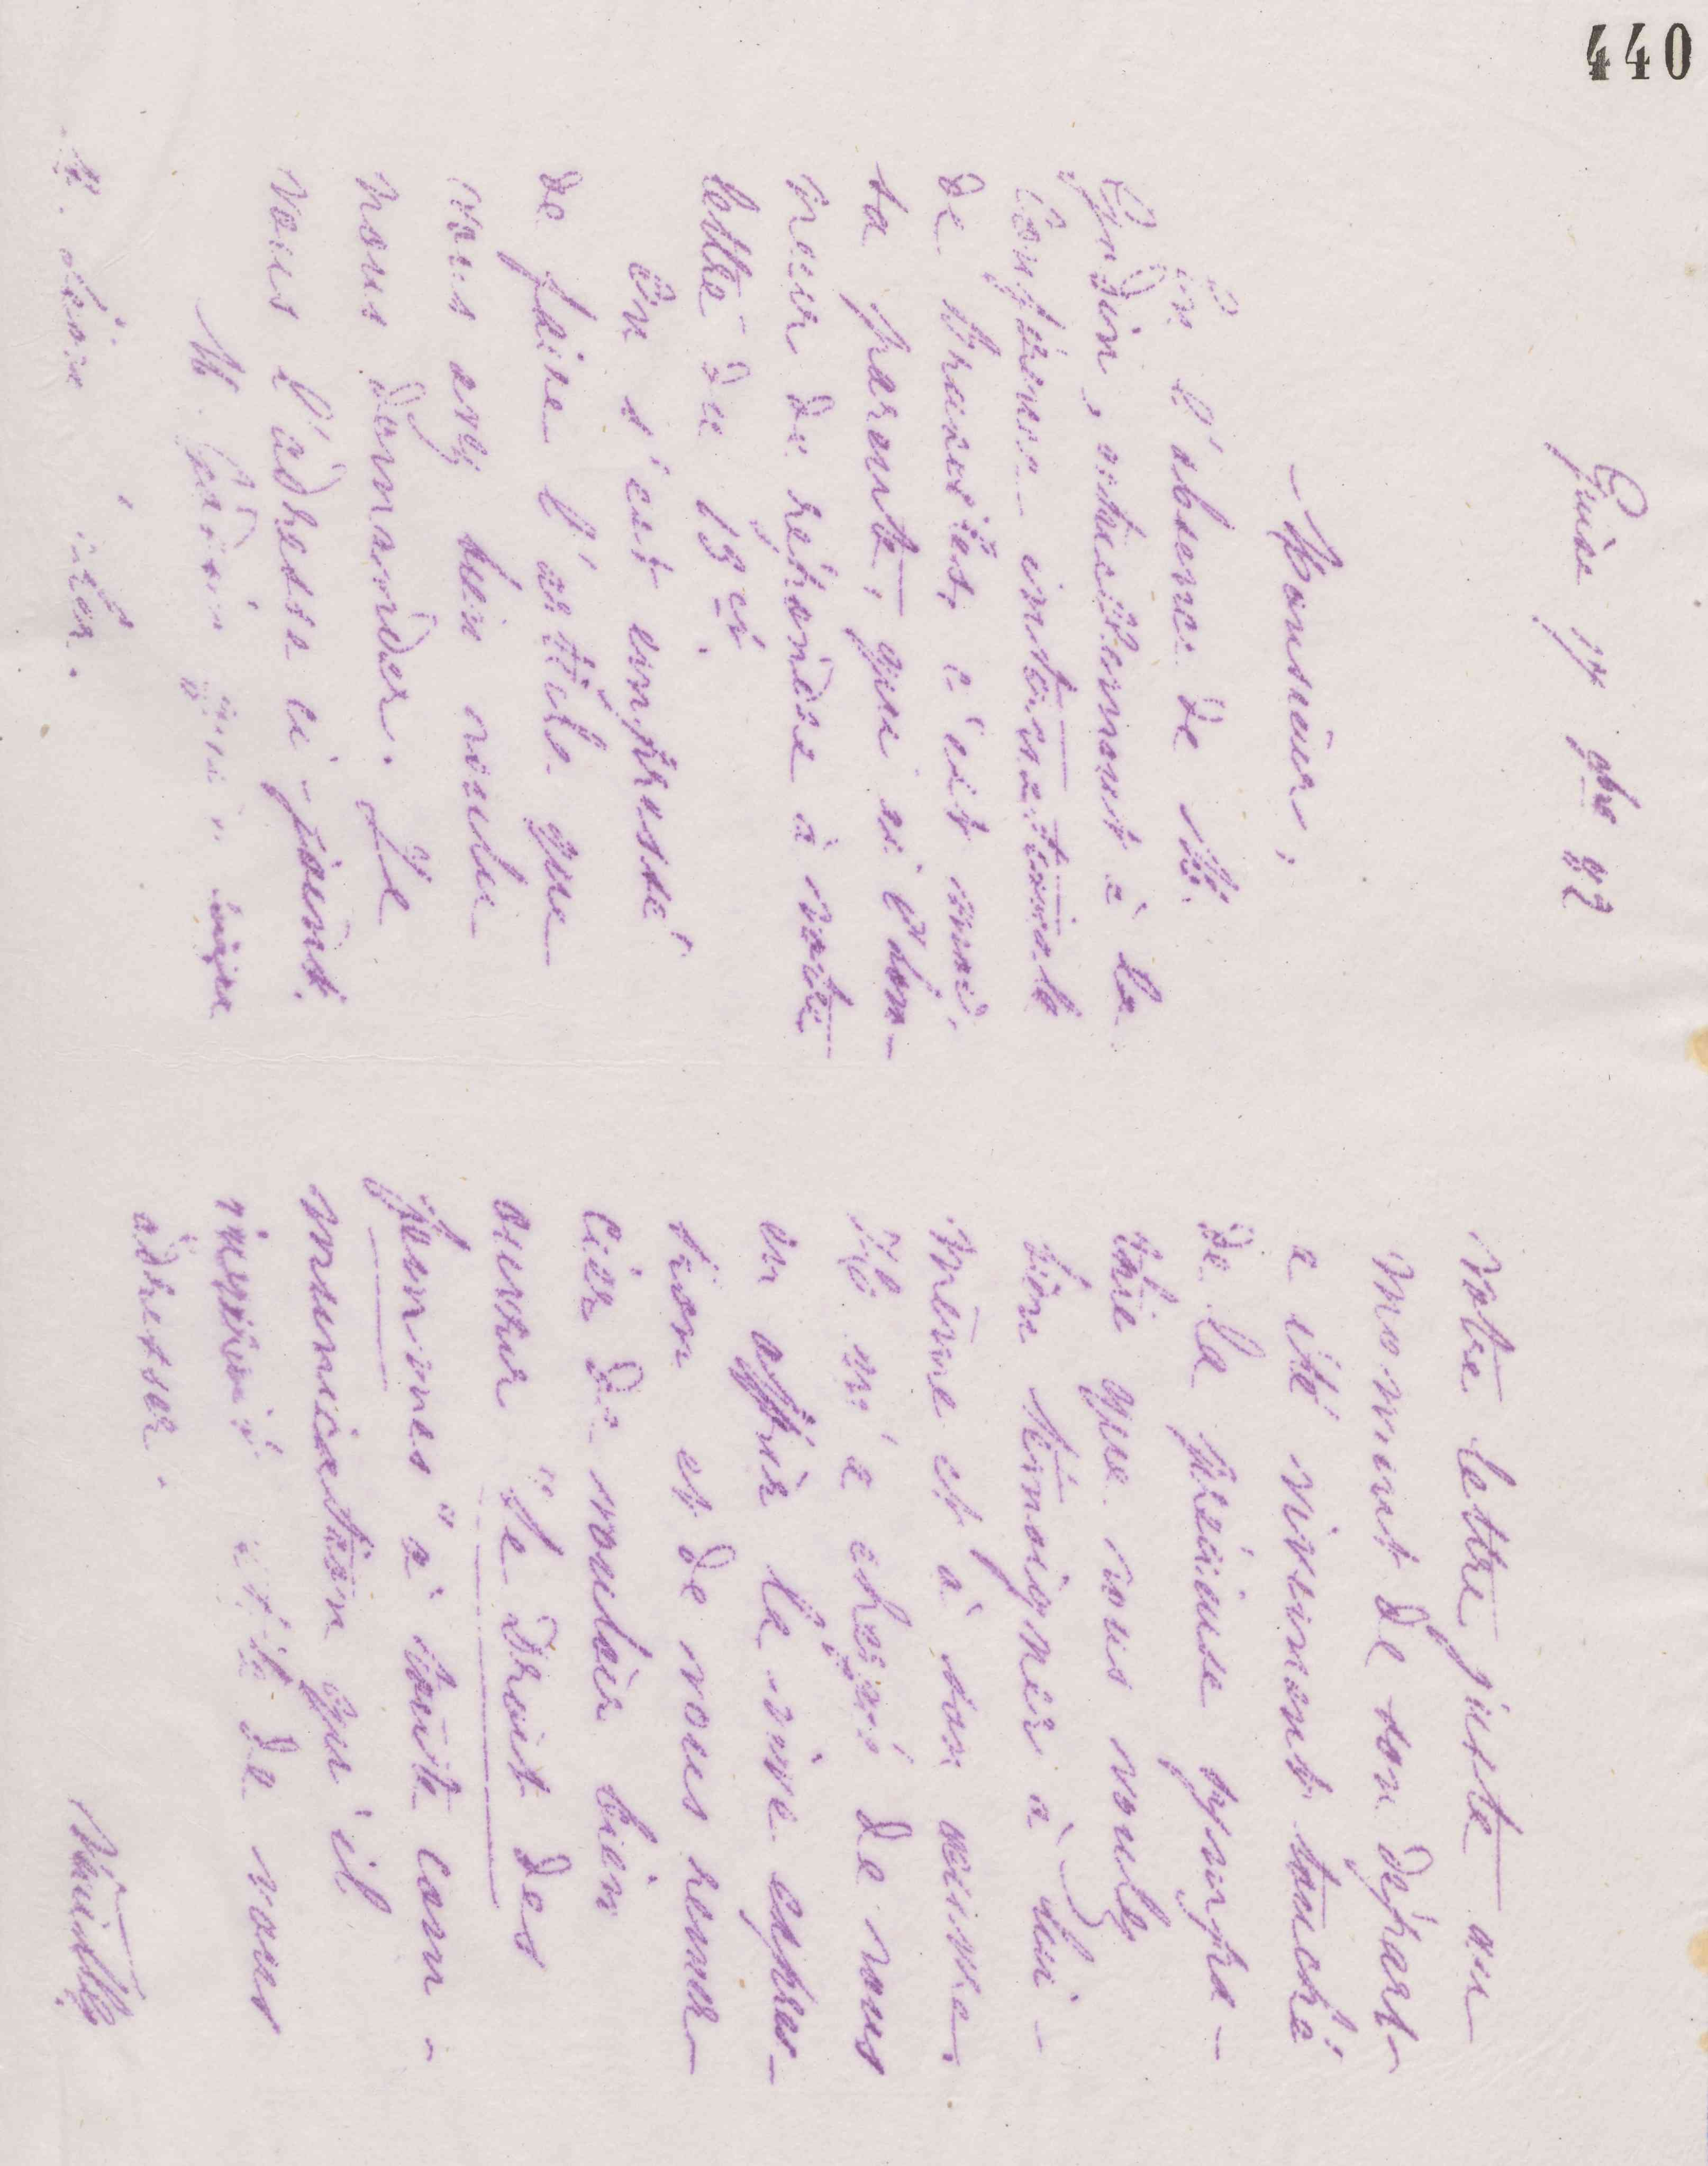 440
Guise 17 9bre 92
Monsieur,
En l'absence de M.
Godin, actuellement à la
Conférence internationale
de Bruxelles, c'est moi,
sa parente, qui ai l'hon-
neur de répondre à votre
lettre du 13 ct.
On s'est empressé
de faire l'article que
vous avez bien voulu
nous demander. Je
vous l'adresse ci-joint.
M. Godin qui a
M. Léon
votre lettre juste au
moment de son départ
a été vivement touché
de la précieuse sympa-
thie que vous voulez
bien témoigner à lui-
même et à son œuvre.
Il m'a chargé de vous
en offrir la vive expres-
sion et de vous remer-
cier de vouloir bien
ouvrir "le Droit des
femmes" à toute com-
munication qu'il
utile de vous
adresser.
Veuillez